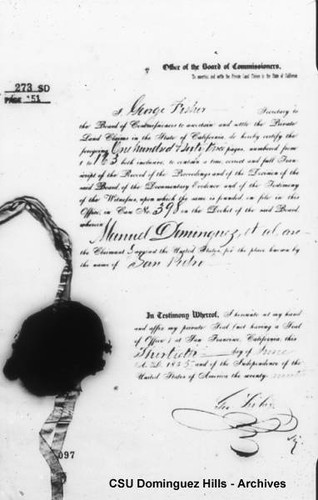 Office of the Board of Commissioners,
To ascertain and settle the Private Land Claims in the State of California.
273 SD
PAGE 151
I, George Fisher Secretary to
the Board of Commissioners to ascertain and settle the Private
Land Claims in the State of California, do hereby certify the
foregoing One hundred & sixty three pages, numbered from
1 to 163 both inclusive, to contain a true, correct and full Tran-
script of the Record of the Proceedings and of the Decision of the
said Board, of the Documentary Evidence and of the Testimony
of the Witnesses, upon which the same is founded, on file in this
Office, in Case No. 398 on the Docket of the said Board,
wherein
Manuel Dominguez, et al are
the Claimants against the United States, for the place known by
the name of San Pedro
In Testimony Whereof, I hereunto set my hand
and affix my private Seal (not having a Seal
of Office) at San Francisco, California, this
Thirtieth day of June
A. D. 185 and of the Independence of the
United States of America the seventy-
Geo. Fisher
097
CSU Dominguez Hills - Archives